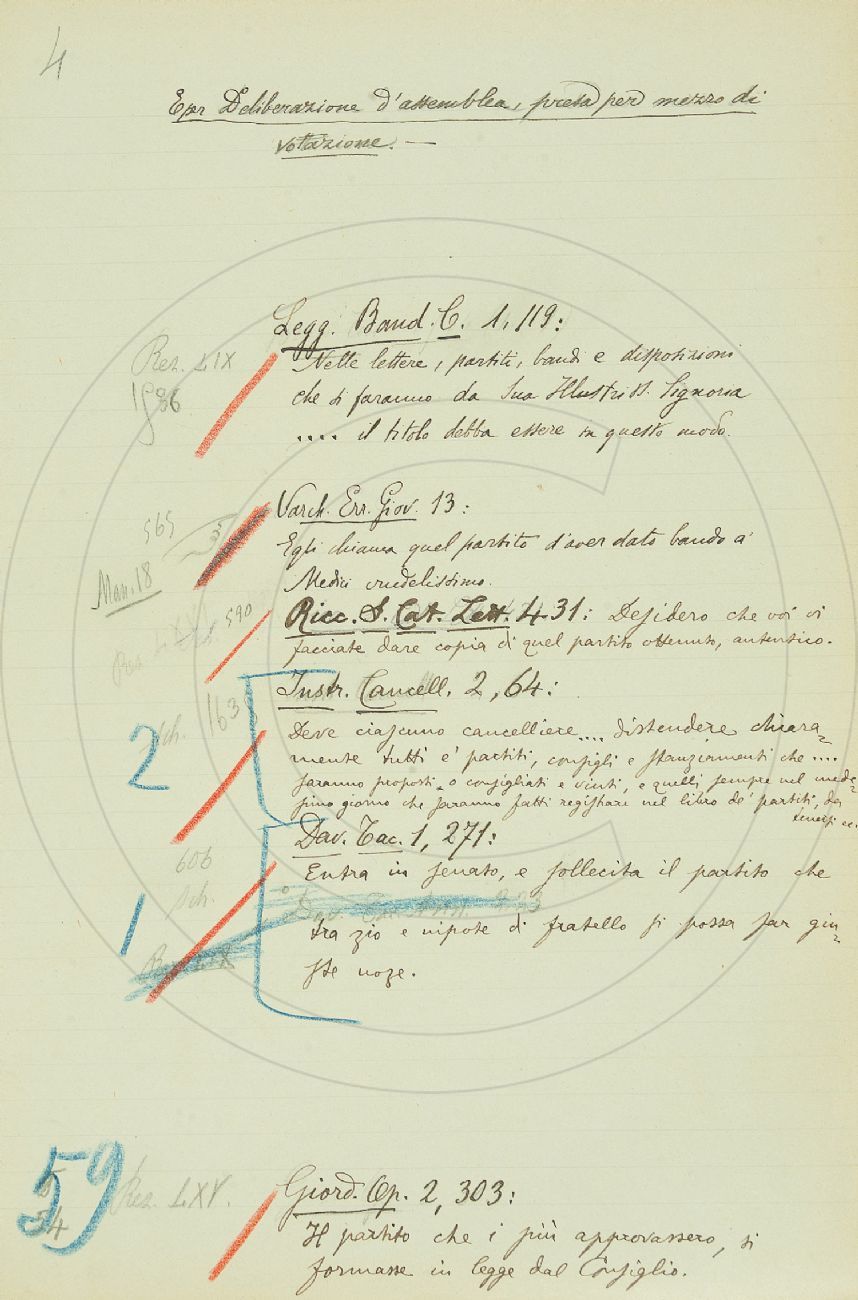 4
Epr Deliberazione d'assemblea, presa per mezzo di
votazione. —
Legg. Band. C. 1, 119:
Rez. LIX
Nelle lettere, partiti, bandi e disposizioni
che si faranno da Sua Illustriss. Signoria
.... il titolo debba essere in questo modo.
Varch. Err. Giov. 13:
565
Egli chiama quel partito d'aver dato bando a'
Man. 18
Medici crudelissimo.
590
Ricc. S. Cat. Lett. 431: Desidero che voi vi
facciate dare copia di quel partito ottenuto, autentico.
Instr. Cancell. 2, 64:
Sch. 163
2
Deve ciascuno cancelliere .... distendere chiara-
mente tutti e' partiti, consigli e stanziamenti che ....
saranno proposti o consigliati e vinti, e quelli sempre nel mede-
simo giorno che saranno fatti registrare nel libro de' partiti, da
tenersi ec.
Dav. Tac. 1, 271:
606
Sch.
Entra in senato, e sollecita il partito che
1
tra zio e nipote di fratello si possa far giu-
ste nozze.
59
54
Rez. LXV.
Giord. Op. 2, 303:
Il partito che i più approvassero, si
formasse in legge dal Consiglio.